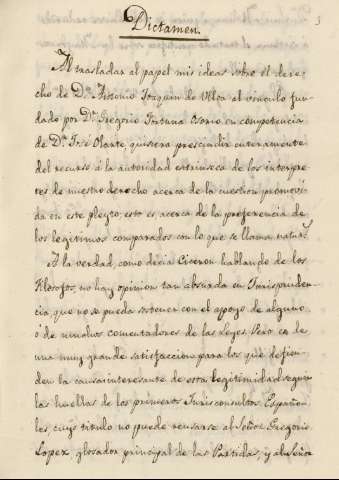 3
Dictamen.
Al trasladar al papel mis ideas sobre el dere-
cho de Dn. Antonio Joaquin de Ulloa al vinculo fun-
dado por Dn. Gregorio Fortuna Osorio en competencia
de Dn. José Olarte, quisiera prescindir enteramente
del recurso á la autoridad extrinseca de los interpre-
tes de nuestro derecho acerca de la cuestion promovi-
da en este pleyto, esto es acerca de la preferencia de
los legitimos comparados con lo que se llama natur.s
A la verdad, como decia Ciceron hablando de los
filosofos, no hay opinion tan absurda en Jurispruden-
cia que no se pueda sostener con el apoyo de alguno
ó de muchos comentadores de las Leyes. Pero es de
una muy grande satisfaccion para los que defien-
den la causa interesante de esta legitimidad seguir
las huellas de los primeros Jurisconsultos Españo-
les cuyo titulo no puede reusarse al Señor Gregorio
Lopez, glosador principal de las Partidas, y al Señor